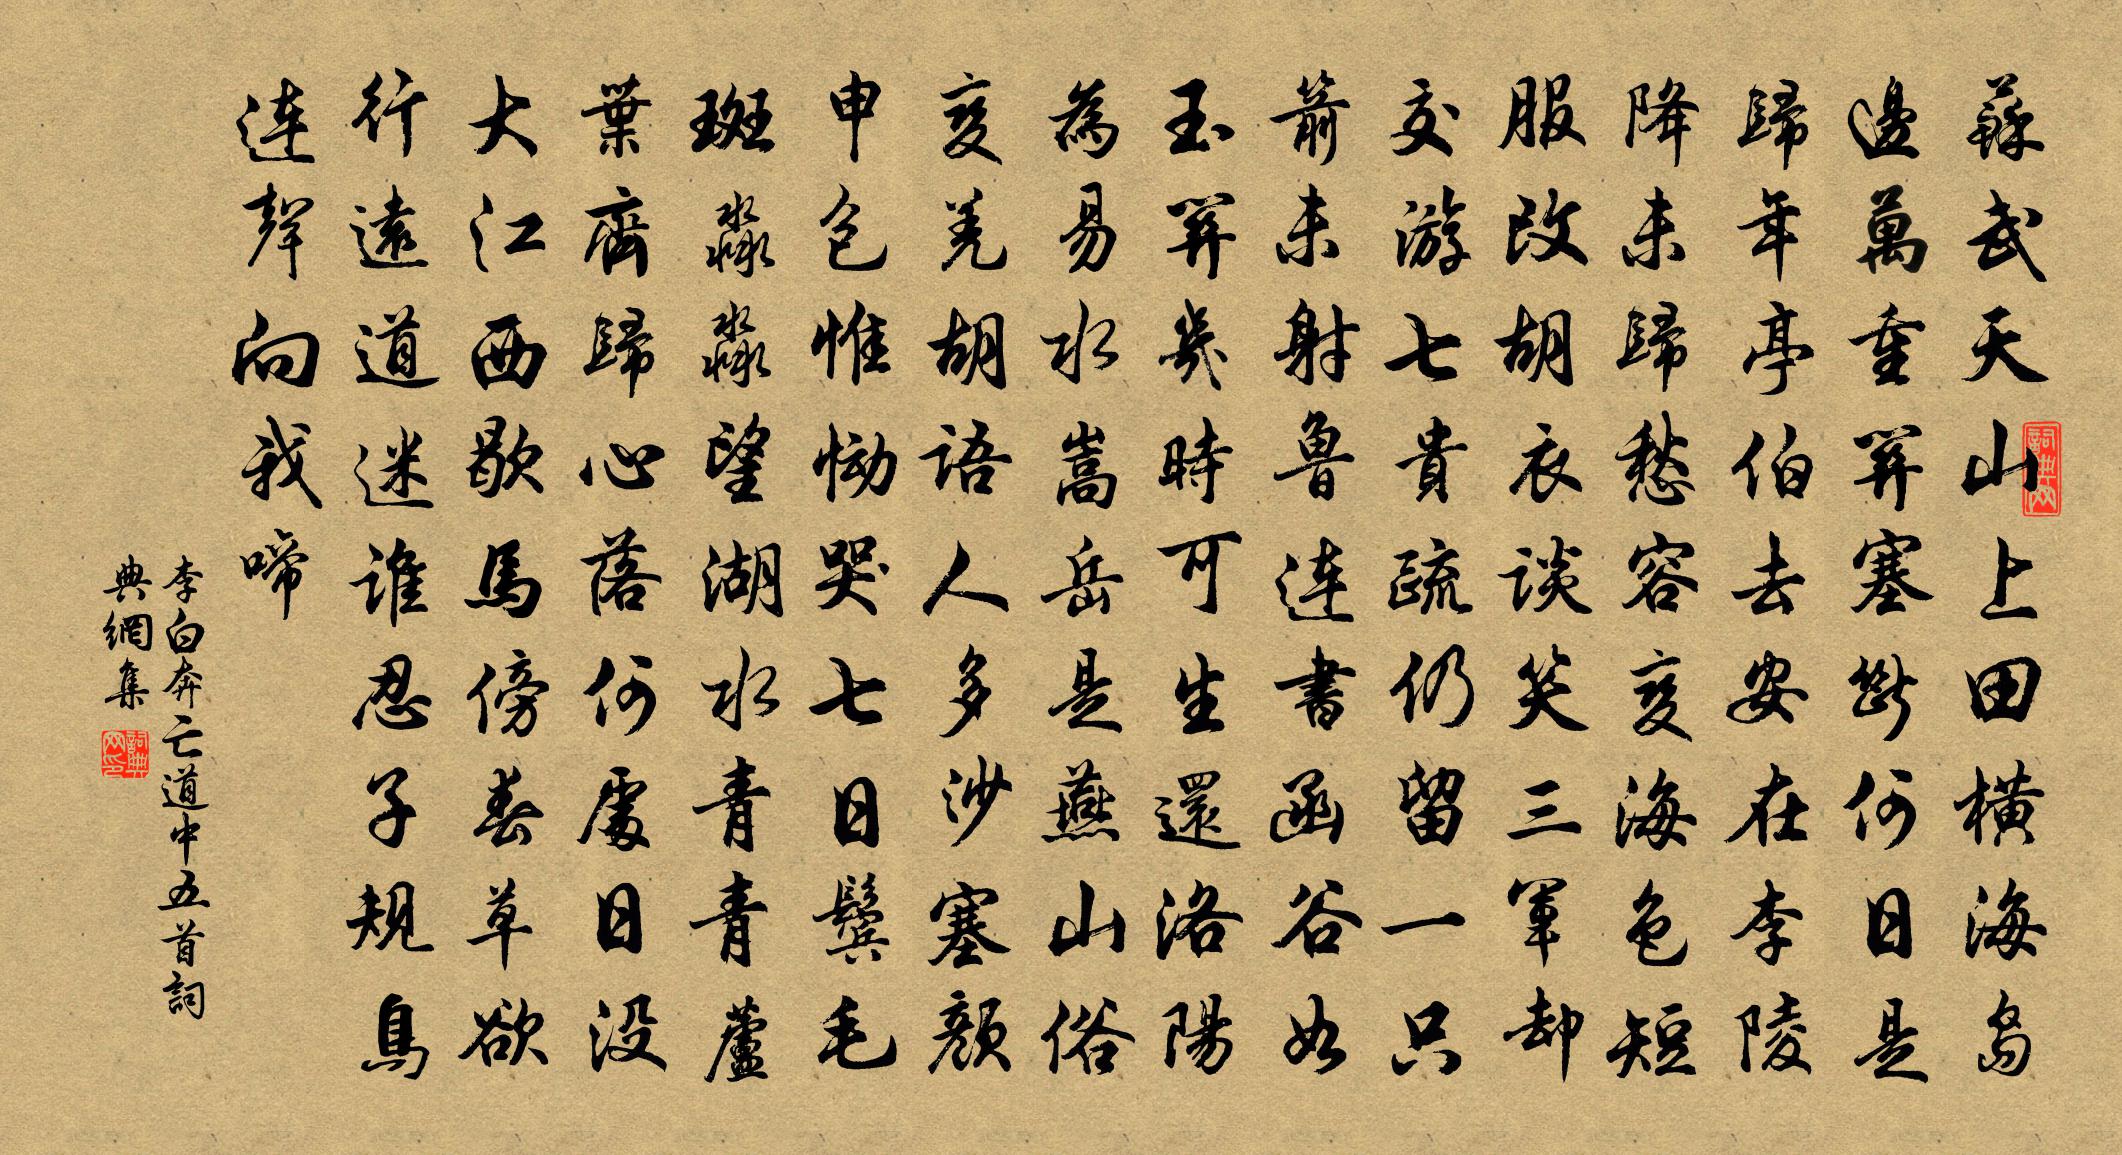 蘇武天山上田橫海島
邊萬重關塞斷何日是
歸年亭伯去安在李陵
降未歸愁容變海色短
服改胡衣談笑三軍却
交游七貴疏仍留一只
箭未射魯連書函谷如
玉關幾時可生還洛陽
為易水嵩岳是燕山俗
變羌胡語人多沙塞顏
申包惟慟哭七日鬢毛
斑淼淼望湖水青青蘆
葉齊歸心落何處日没
大江西歇馬傍春草欲
行遠道迷誰忍子規鳥
連聲向我啼
李白奔亡道中五首詞
典網集
詞典网
詞典网印